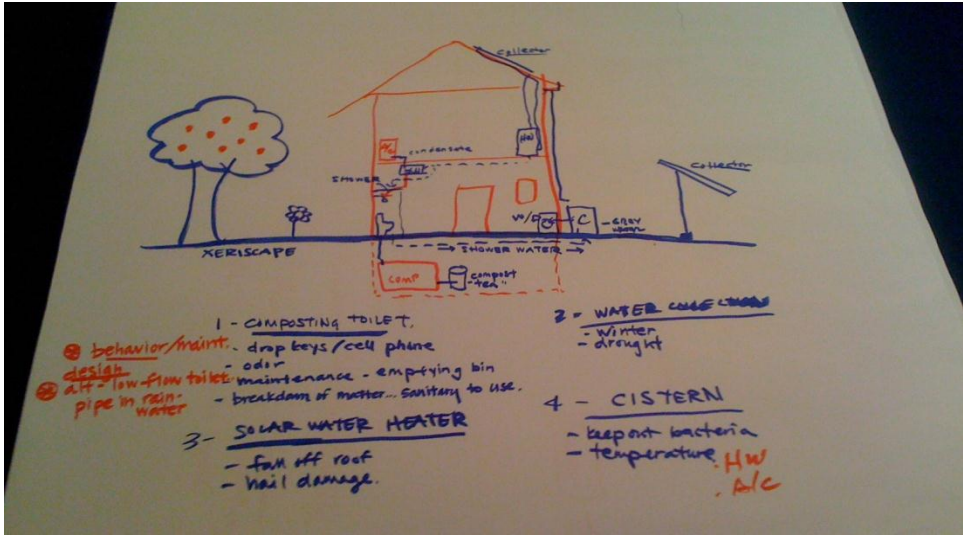 Collector
HW
A/C
condensate
SHOWER
Collector
C
GREY
WATER
SHOWER WATER
XERISCAPE
COMP
compost
"tea"
1 - COMPOSTING TOILET.
- drop keys/cell phone
- odor
- maintenance - emptying bin
- breakdown of matter... sanitary to use.
behavior/maint.
design
alt - low-flow toilet
pipe in rain-
water
2 - WATER COLLECTION
- winter
- drought
3 - SOLAR WATER HEATER
- fall off roof
- hail damage.
4 - CISTERN
- keep out bacteria
- temperature
. HW
. A/C